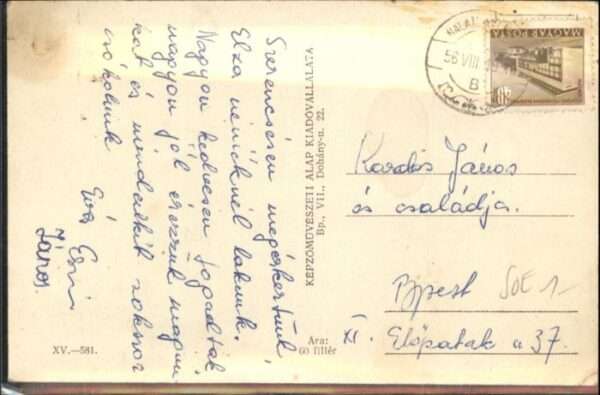 Szerencsésen megérkeztünk,
Elza néniéknél lakunk.
Nagyon kedvesen fogadtak
nagyon jól érezzük magun-
kat és mindenkit sokszor
csókolunk
Éva Erzsi
János.
KÉPZŐMŰVÉSZETI ALAP KIADÓVÁLLALATA
Bp., VII., Dohány-u. 22.
XV.—581.
Ára:
60 fillér
56 VIII
B
MAGYAR POSTA
Kardos János
és családja.
Bpest
SOE 1-
XI. Előpatak u 37.